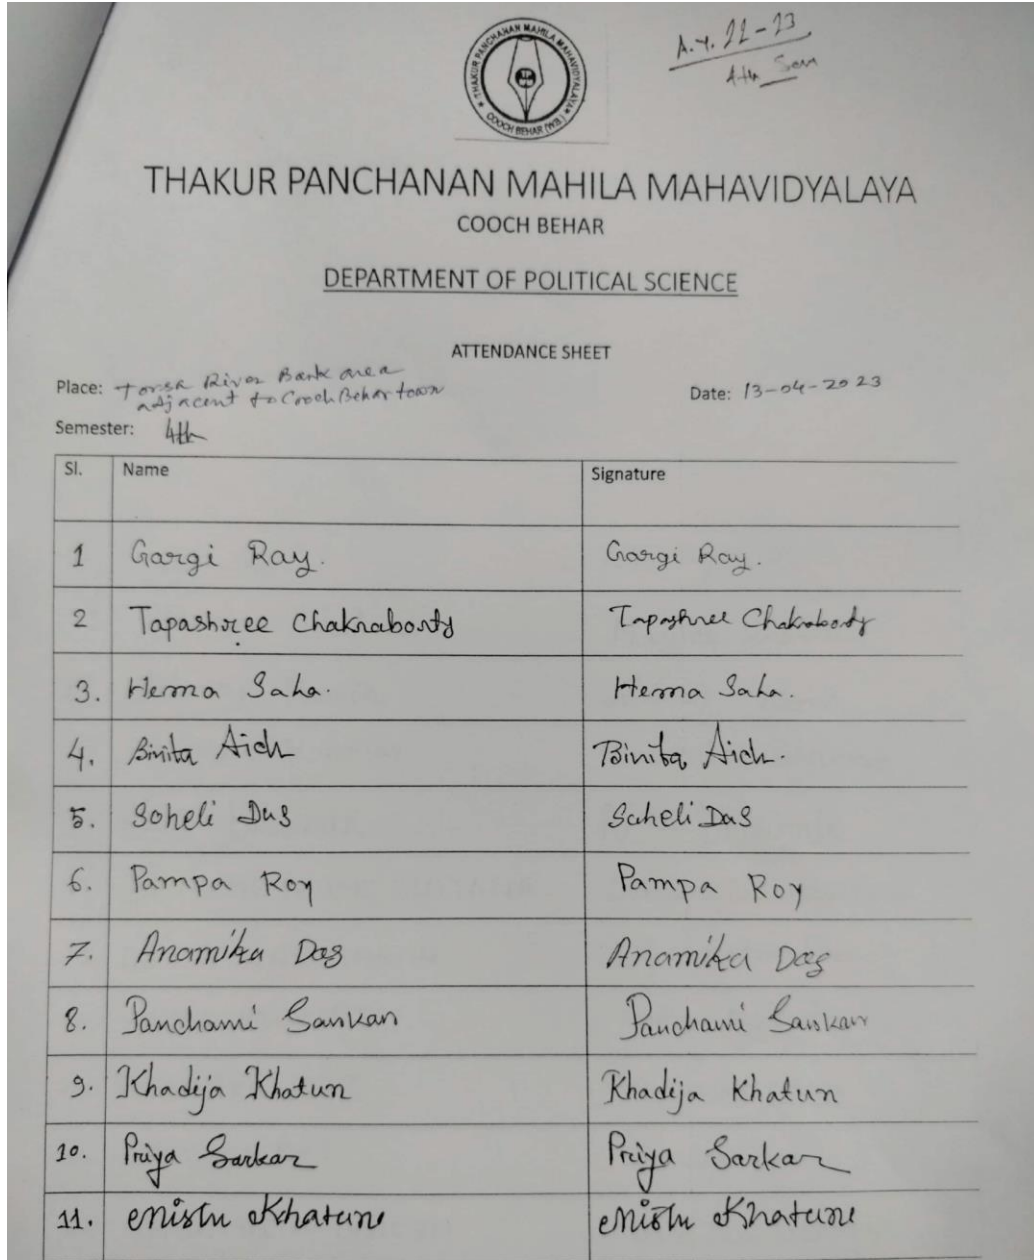 THAKUR PANCHANAN MAHILA MAHAVIDYALAYA
COOCH BEHAR (W.B.)
A.Y. 22-23
4th Sem
THAKUR PANCHANAN MAHILA MAHAVIDYALAYA
COOCH BEHAR
DEPARTMENT OF POLITICAL SCIENCE
ATTENDANCE SHEET
Place: Torsa River Bank area
adjacent to Cooch Behar town
Date: 13-04-2023
Semester: 4th
Sl. Name Signature
1 Gargi Ray. Gargi Ray.
2 Tapashree Chakraborty Tapashree Chakraborty
3. Hema Saha. Hema Saha.
4. Binita Aich Binita Aich.
5. Soheli Das Saheli Das
6. Pampa Roy Pampa Roy
7. Anamika Das Anamika Das
8. Panchami Sarkar Panchami Sarkar
9. Khadija Khatun Khadija Khatun
10. Priya Sarkar Priya Sarkar
11. Mistu Khatun Mistu Khatun